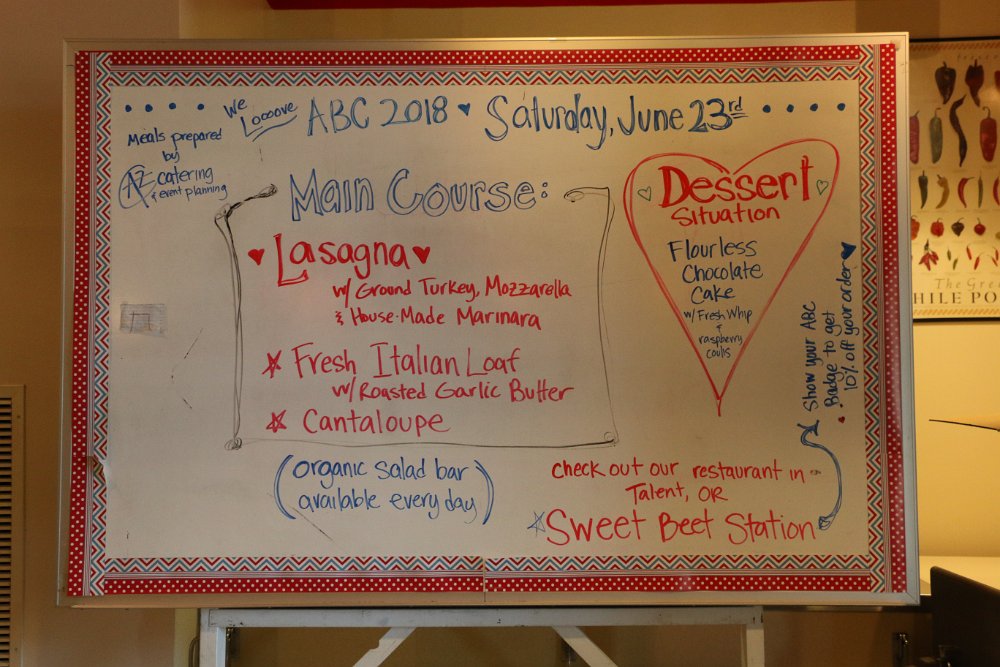 We
Looove
ABC 2018 ♥ Saturday, June 23rd
Meals prepared
by
AZ catering
& event planning
Main Course:
♥ Lasagna ♥
w/ Ground Turkey, Mozzarella
& House-Made Marinara
☆ Fresh Italian Loaf
w/ Roasted Garlic Butter
☆ Cantaloupe
(organic salad bar
available every day)
♡ Dessert ♡
Situation
Flourless
Chocolate
Cake
w/ Fresh Whip
&
raspberry
coulis
Show your ABC
Badge to get
10% off your order ♥
check out our restaurant in
Talent, OR
☆ Sweet Beet Station
The Gre
HILE PO